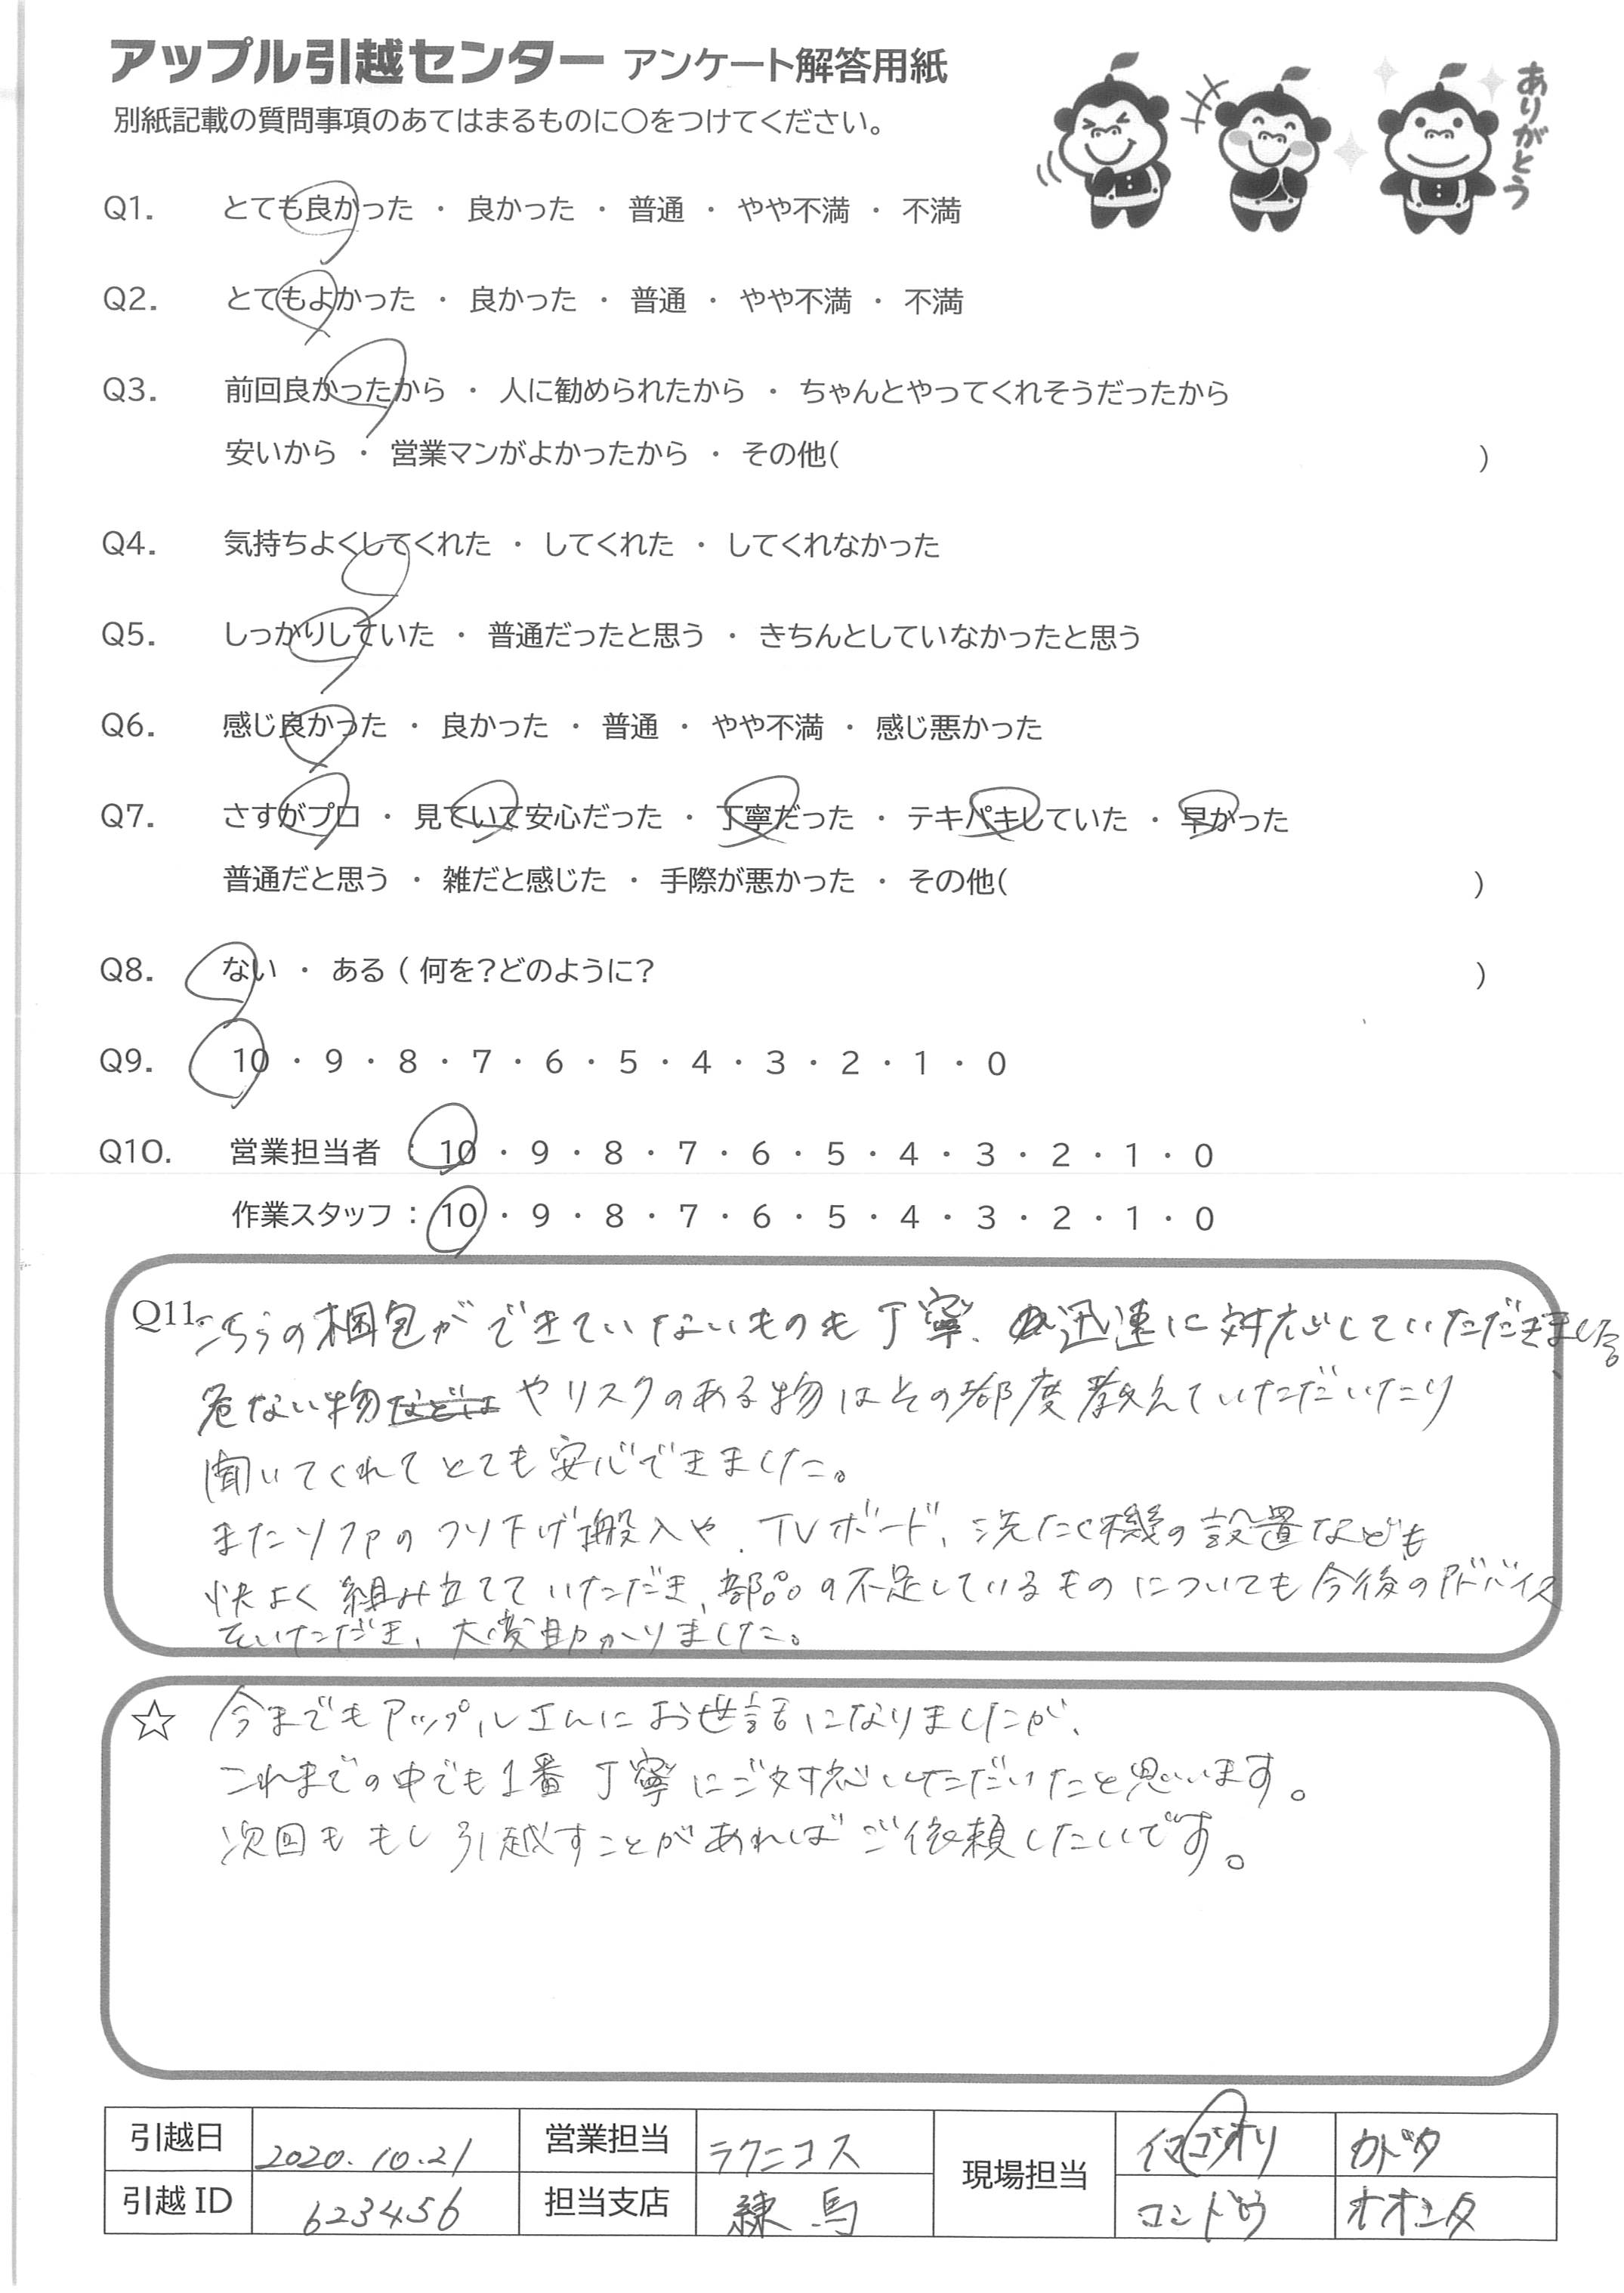 アップル引越センター アンケート解答用紙
別紙記載の質問事項のあてはまるものに○をつけてください。
ありがとう
Q1. とても良かった ・ 良かった ・ 普通 ・ やや不満 ・ 不満
Q2. とてもよかった ・ 良かった ・ 普通 ・ やや不満 ・ 不満
Q3. 前回良かったから ・ 人に勧められたから ・ ちゃんとやってくれそうだったから
安いから ・ 営業マンがよかったから ・ その他( )
Q4. 気持ちよくしてくれた ・ してくれた ・ してくれなかった
Q5. しっかりしていた ・ 普通だったと思う ・ きちんとしていなかったと思う
Q6. 感じ良かった ・ 良かった ・ 普通 ・ やや不満 ・ 感じ悪かった
Q7. さすがプロ ・ 見ていて安心だった ・ 丁寧だった ・ テキパキしていた ・ 早かった
普通だと思う ・ 雑だと感じた ・ 手際が悪かった ・ その他( )
Q8. ない ・ ある ( 何を?どのように? )
Q9. 10 ・ 9 ・ 8 ・ 7 ・ 6 ・ 5 ・ 4 ・ 3 ・ 2 ・ 1 ・ 0
Q10. 営業担当者 : 10 ・ 9 ・ 8 ・ 7 ・ 6 ・ 5 ・ 4 ・ 3 ・ 2 ・ 1 ・ 0
作業スタッフ : 10 ・ 9 ・ 8 ・ 7 ・ 6 ・ 5 ・ 4 ・ 3 ・ 2 ・ 1 ・ 0
Q11. こちらの梱包ができていないものも丁寧、迅速に対応していただきました。
危ない物などはやリスクのある物はその都度教えていただいたり
聞いてくれてとても安心できました。
またソファのつり下げ搬入や、TVボード、洗たく機の設置なども
快よく組み立てていただき、部品の不足しているものについても今後のアドバイス
をいただき、大変助かりました。
☆ 今までもアップルさんにお世話になりましたが、
これまでの中でも1番丁寧にご対応いただいたと思います。
次回ももし引越すことがあればご依頼したいです。
引越日 2020.10.21 営業担当 ラクニコス 現場担当 カドタ
引越ID 623456 担当支店 練馬 コンドウ オオシタ